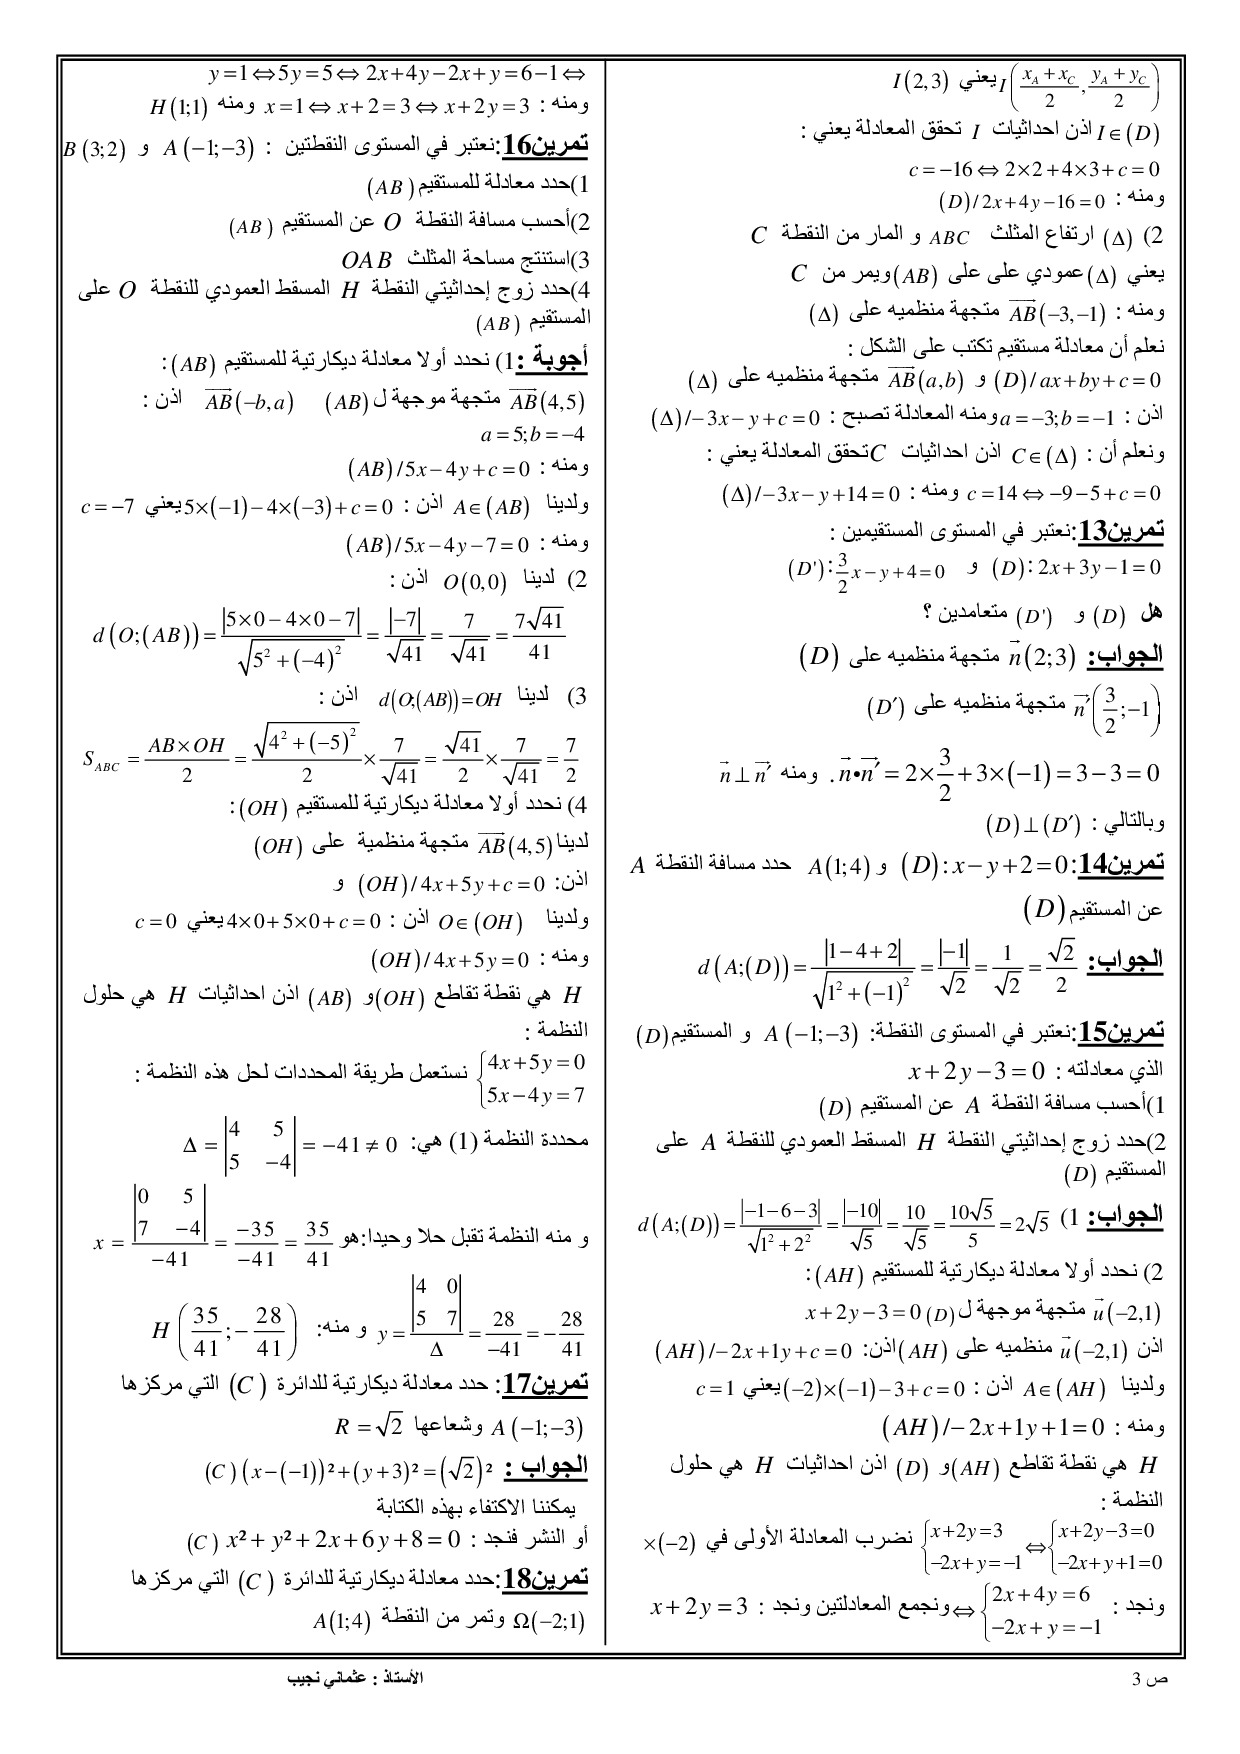 I(2,3) يعني I((x_A+x_C)/2 , (y_A+y_C)/2)
I∈(D) اذن احداثيات I تحقق المعادلة يعني :
c=−16 ⇔ 2×2+4×3+c=0
ومنه : (D)/2x+4y−16=0
2) (Δ) ارتفاع المثلث ABC و المار من النقطة C
يعني (Δ) عمودي على على (AB) ويمر من C
ومنه : AB→(−3,−1) متجهة منظميه على (Δ)
نعلم أن معادلة مستقيم تكتب على الشكل :
(D)/ax+by+c=0 و AB→(a,b) متجهة منظميه على (Δ)
اذن : a=−3;b=−1 ومنه المعادلة تصبح : (Δ)/−3x−y+c=0
ونعلم أن : C∈(Δ) اذن احداثيات C تحقق المعادلة يعني :
c=14 ⇔ −9−5+c=0 ومنه : (Δ)/−3x−y+14=0
تمرين13:نعتبر في المستوى المستقيمين :
(D):2x+3y−1=0 و (D'):3/2 x−y+4=0
هل (D) و (D') متعامدين ؟
الجواب: n→(2;3) متجهة منظميه على (D)
n→′(3/2;−1) متجهة منظميه على (D′)
n→•n→′=2×3/2+3×(−1)=3−3=0 . ومنه n→⊥n→′
وبالتالي : (D)⊥(D′)
تمرين14:(D):x−y+2=0 و A(1;4) حدد مسافة النقطة A
عن المستقيم (D)
الجواب: d(A;(D))=|1−4+2|/√(1²+(−1)²)=|−1|/√2=1/√2=√2/2
تمرين15:نعتبر في المستوى النقطة: A(−1;−3) و المستقيم (D)
الذي معادلته : x+2y−3=0
1)أحسب مسافة النقطة A عن المستقيم (D)
2)حدد زوج إحداثيتي النقطة H المسقط العمودي للنقطة A على
المستقيم (D)
الجواب: 1) d(A;(D))=|−1−6−3|/√(1²+2²)=|−10|/√5=10/√5=10√5/5=2√5
2) نحدد أولا معادلة ديكارتية للمستقيم (AH):
u→(−2,1) متجهة موجهة ل (D) x+2y−3=0
اذن u→(−2,1) منظميه على (AH) اذن: (AH)/−2x+1y+c=0
ولدينا A∈(AH) اذن : (−2)×(−1)−3+c=0 يعني c=1
ومنه : (AH)/−2x+1y+1=0
H هي نقطة تقاطع (AH) و (D) اذن احداثيات H هي حلول
النظمة :
{x+2y−3=0 ; −2x+y+1=0 ⇔ {x+2y=3 ; −2x+y=−1 نضرب المعادلة الأولى في (−2)×
ونجد : {2x+4y=6 ; −2x+y=−1 ⇔ ونجمع المعادلتين ونجد : x+2y=3
y=1⇔5y=5⇔2x+4y−2x+y=6−1⇔
ومنه : x=1⇔x+2=3⇔x+2y=3 ومنه H(1;1)
تمرين16:نعتبر في المستوى النقطتين : A(−1;−3) و B(3;2)
1)حدد معادلة للمستقيم (AB)
2)أحسب مسافة النقطة O عن المستقيم (AB)
3)استنتج مساحة المثلث OAB
4)حدد زوج إحداثيتي النقطة H المسقط العمودي للنقطة O على
المستقيم (AB)
أجوبة :1) نحدد أولا معادلة ديكارتية للمستقيم (AB):
AB→(4,5) متجهة موجهة ل (AB) AB→(−b,a) اذن :
a=5;b=−4
ومنه : (AB)/5x−4y+c=0
ولدينا A∈(AB) اذن : 5×(−1)−4×(−3)+c=0 يعني c=−7
ومنه : (AB)/5x−4y−7=0
2) لدينا O(0,0) اذن :
d(O;(AB))=|5×0−4×0−7|/√(5²+(−4)²)=|−7|/√41=7/√41=7√41/41
3) لدينا d(O;(AB))=OH اذن :
S_ABC=(AB×OH)/2=√(4²+(−5)²)/2×7/√41=√41/2×7/√41=7/2
4) نحدد أولا معادلة ديكارتية للمستقيم (OH):
لدينا AB→(4,5) متجهة منظمية على (OH)
اذن: (OH)/4x+5y+c=0 و
ولدينا O∈(OH) اذن : 4×0+5×0+c=0 يعني c=0
ومنه : (OH)/4x+5y=0
H هي نقطة تقاطع (OH) و (AB) اذن احداثيات H هي حلول
النظمة :
{4x+5y=0 ; 5x−4y=7 نستعمل طريقة المحددات لحل هذه النظمة :
محددة النظمة (1) هي: Δ=|4 5 ; 5 −4|=−41≠0
و منه النظمة تقبل حلا وحيدا:هو x=|0 5 ; 7 −4|/−41=−35/−41=35/41
y=|4 0 ; 5 7|/Δ=28/−41=−28/41 و منه: H(35/41;−28/41)
تمرين17: حدد معادلة ديكارتية للدائرة (C) التي مركزها
A(−1;−3) وشعاعها R=√2
الجواب : (C)(x−(−1))²+(y+3)²=(√2)²
يمكننا الاكتفاء بهذه الكتابة
أو النشر فنجد : (C) x²+y²+2x+6y+8=0
تمرين18:حدد معادلة ديكارتية للدائرة (C) التي مركزها
Ω(−2;1) وتمر من النقطة A(1;4)
ص 3
الأستاذ : عثماني نجيب